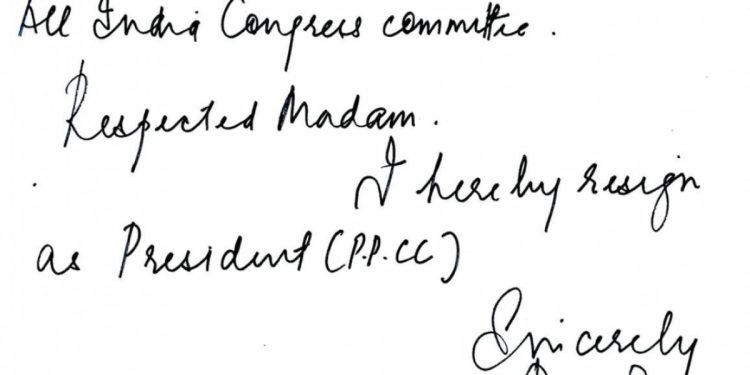 All India Congress committee.
Respected Madam.
I hereby resign
as President (P.P.CC)
Sincerely